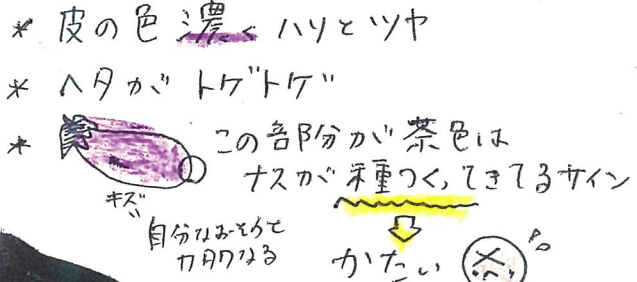 * 皮の色濃く ハリとツヤ
* ヘタが トゲトゲ
* この部分が茶色は
ナスが種つくってきてるサイン
キズ
自分なおそうと
カタクなる
かたい